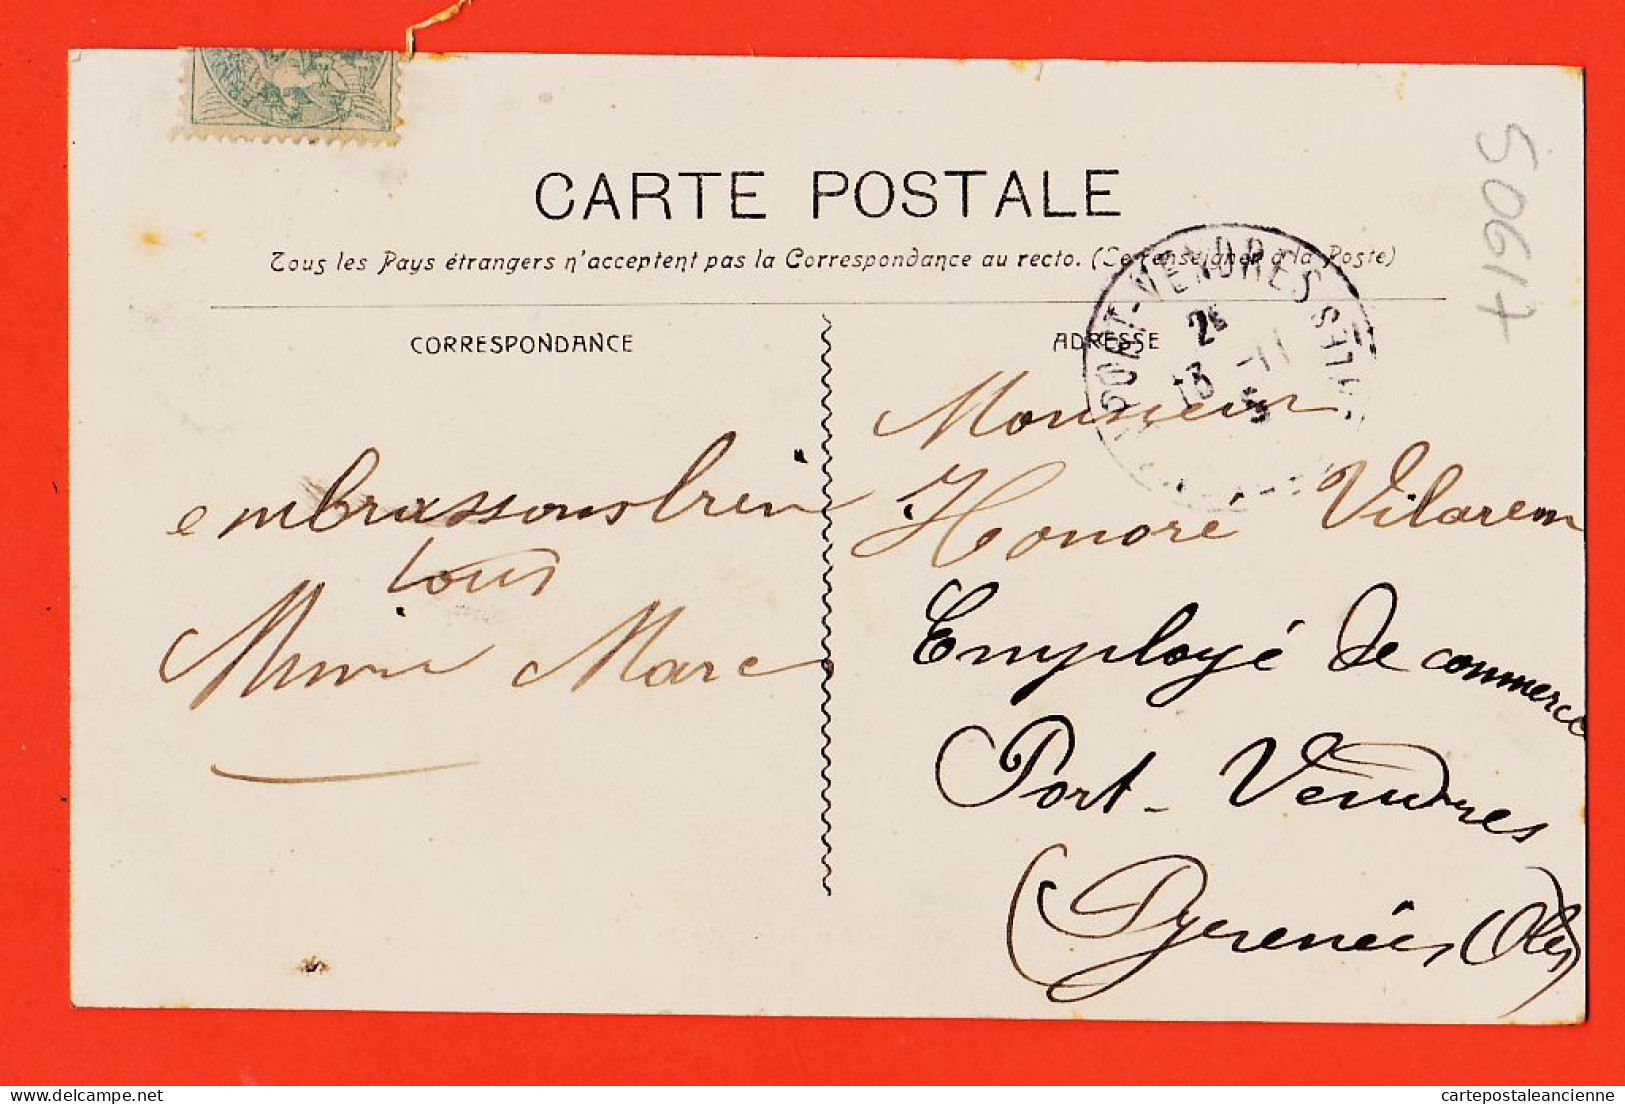 CARTE POSTALE
Tous les Pays étrangers n'acceptent pas la Correspondance au recto. (Se renseigner à la Poste)
CORRESPONDANCE
ADRESSE
PORT-VENDRES
13 -11
50617
embrassons bien
tous
Marc
Monsieur
Honoré Vilarem
Employé de commerce
Port-Vendres
(Pyrenées Oles)
cartepostaleancienne
www.delcampe.net